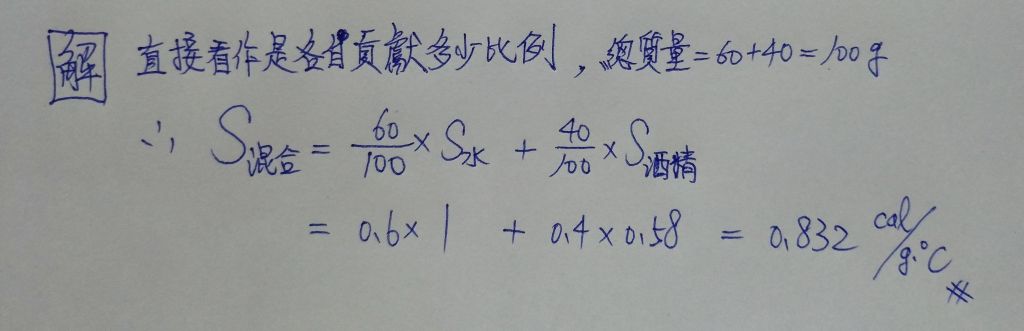 解 直接看作是各自貢獻多少比例，總質量=60+40=100g
∴ S混合 = 60/100 × S水 + 40/100 × S酒精
= 0.6×1 + 0.4×0.58 = 0.832 cal/g·°C